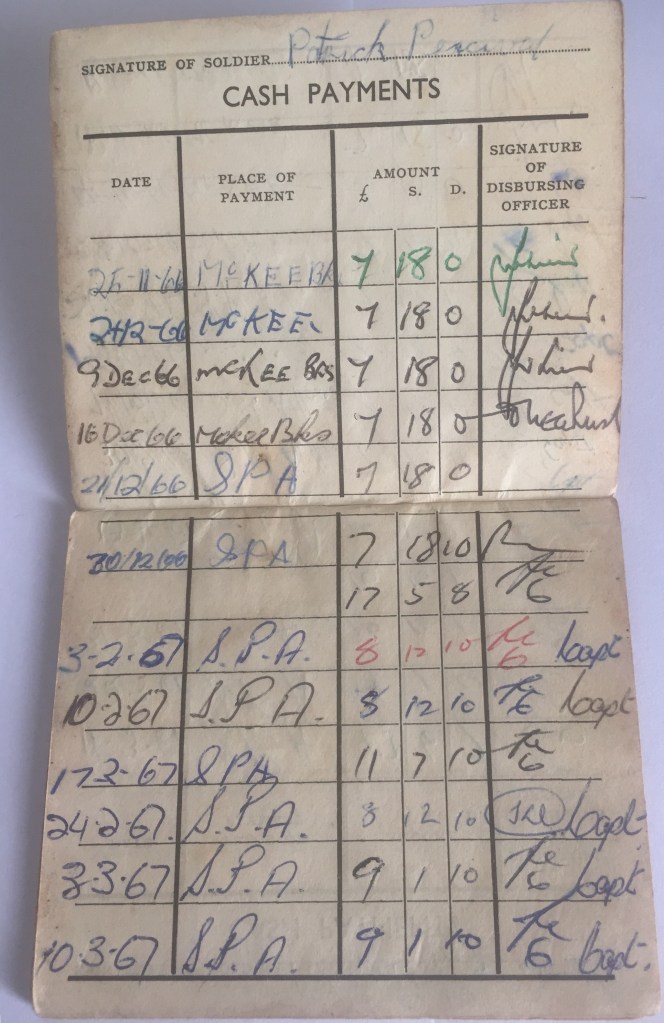 SIGNATURE OF SOLDIER Patrick Percival
CASH PAYMENTS
DATE PLACE OF PAYMENT AMOUNT £ S. D. SIGNATURE OF DISBURSING OFFICER
25-11-66 McKEE Bks 7 18 0
2-12-66 McKEE. 7 18 0
9 Dec 66 McKEE BKS 7 18 0
16 Dec 66 McKee Bks 7 18 0
21/12/66 SPA 7 18 0
30/12/66 SPA 7 18 10
17 5 8
3-2-67 S.P.A. 8 12 10 Capt
10-2-67 S.P.A. 8 12 10 Capt
17-2-67 SPA 11 7 10
24-2-67. S.P.A. 8 12 10 Capt.
3-3-67 S.P.A. 9 1 10 Capt
10-3-67 S.P.A. 9 1 10 Capt.